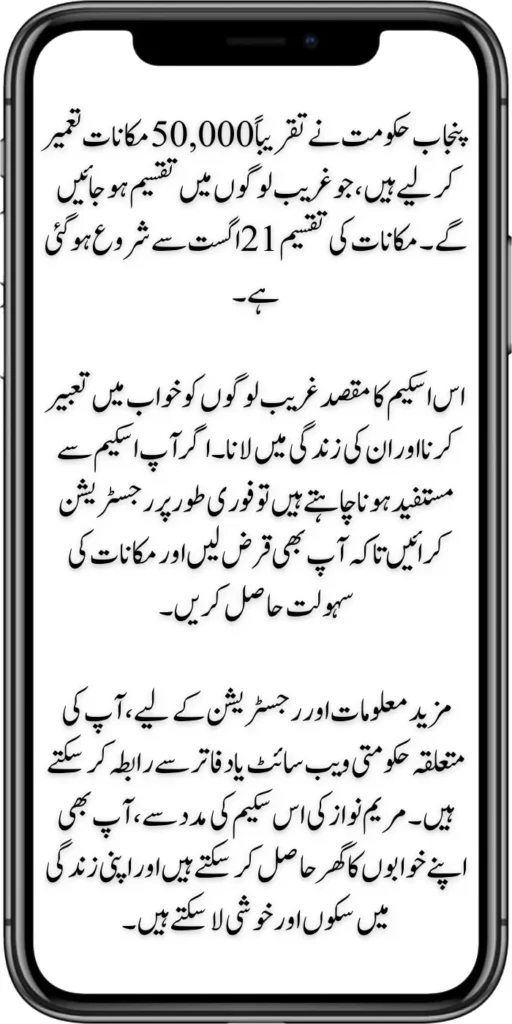 پنجاب حکومت نے تقریباً50,000 مکانات تعمیر
کر لیے ہیں، جو غریب لوگوں میں تقسیم ہو جائیں
گے۔ مکانات کی تقسیم 21 اگست سے شروع ہو گئی
ہے۔
اس اسکیم کا مقصد غریب لوگوں کو خواب میں تعبیر
کرنا اور ان کی زندگی میں لانا۔ اگر آپ اسکیم سے
مستفید ہونا چاہتے ہیں تو فوری طور پر رجسٹریشن
کرائیں تاکہ آپ بھی قرض لیں اور مکانات کی
سہولت حاصل کریں۔
مزید معلومات اور رجسٹریشن کے لیے، آپ کی
متعلقہ حکومتی ویب سائٹ یا دفاتر سے رابطہ کر سکتے
ہیں۔ مریم نواز کی اس سکیم کی مدد سے، آپ بھی
اپنے خوابوں کا گھر حاصل کر سکتے ہیں اور اپنی زندگی
میں سکوں اور خوشی لا سکتے ہیں۔